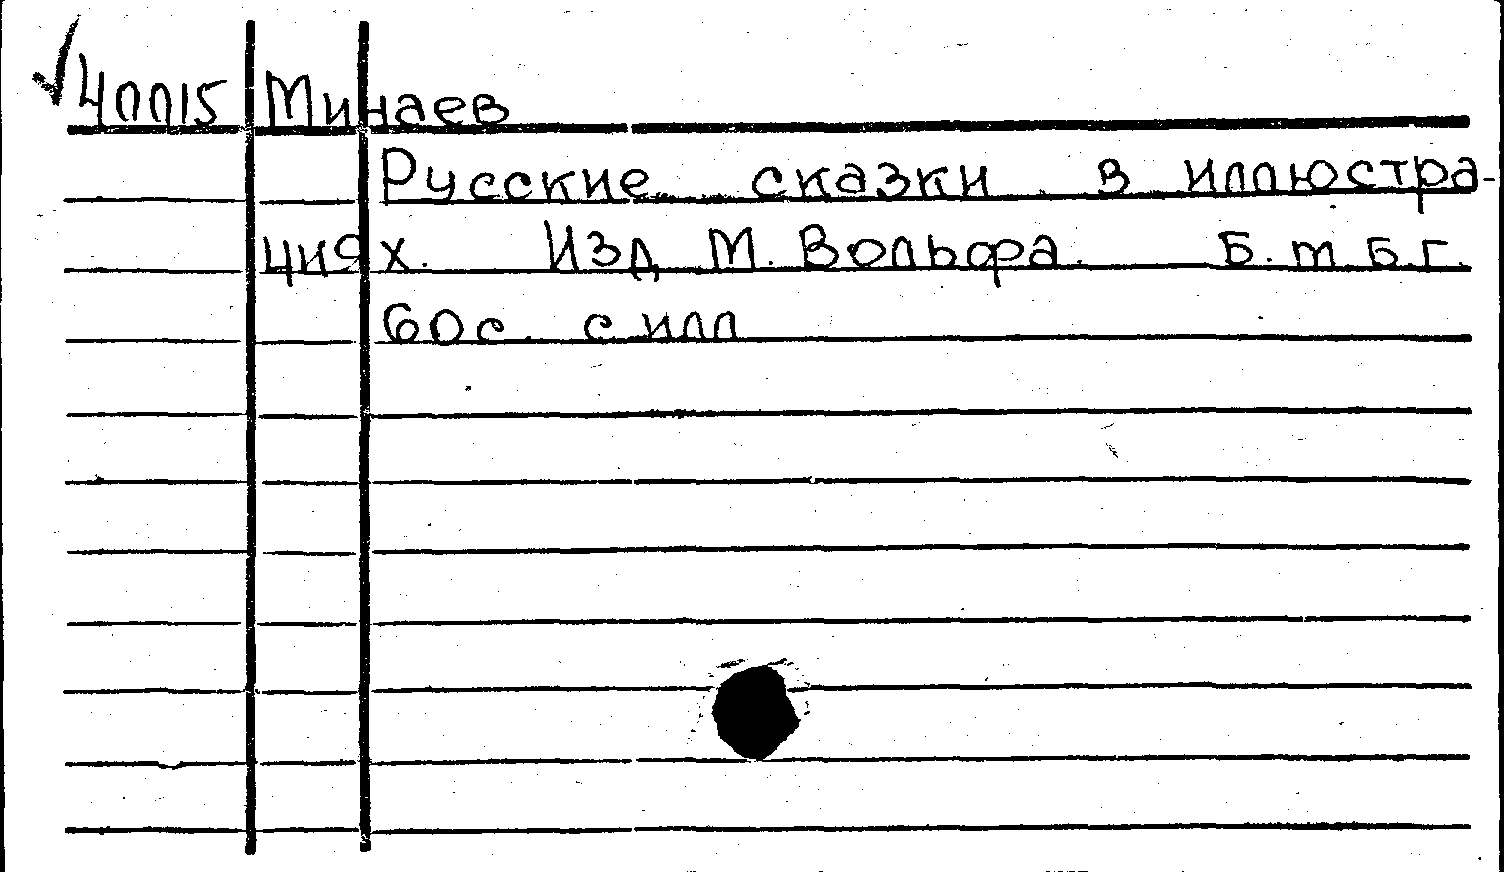 ✓40015 Минаев
Русские сказки в иллюстра-
циях. Изд. М. Вольфа. Б. м. Б.г.
60с. с илл